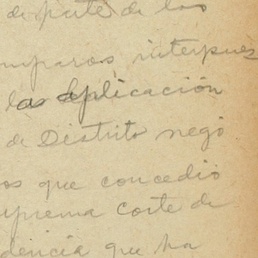 de parte de los
mparos interpues
las aplicación
de Distrito negó
os que concedió
uprema corte de
dencia que ha